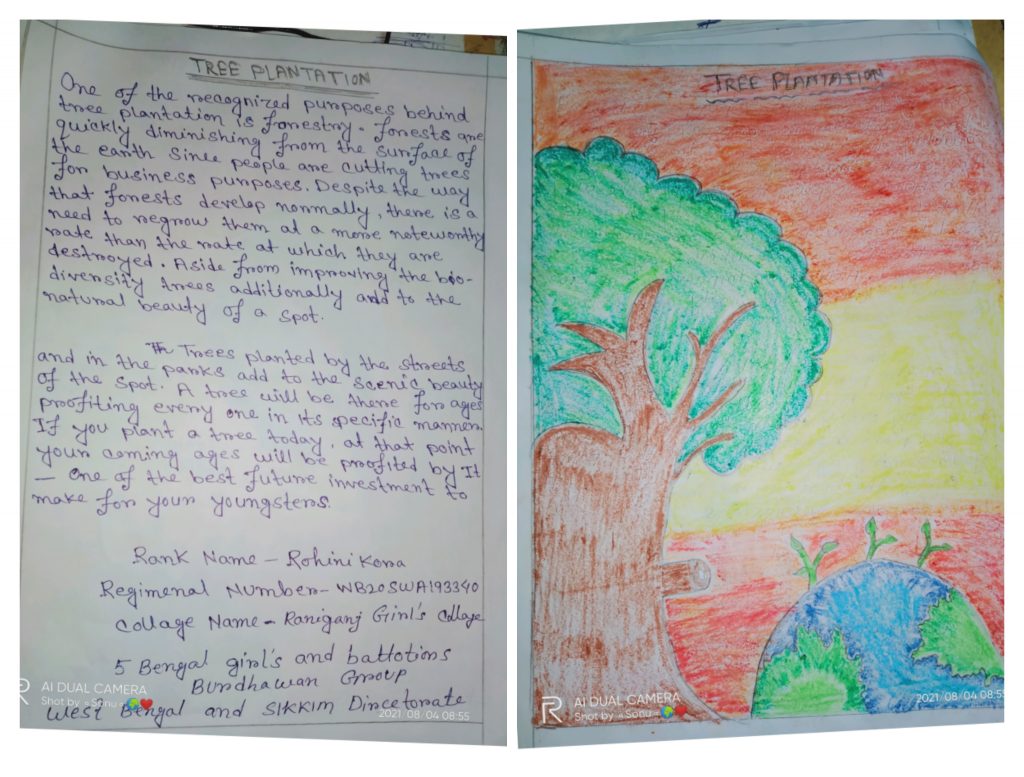 TREE PLANTATION
One of the recognized purposes behind
tree plantation is forestry. forests are
quickly diminishing from the surface of
the earth since people are cutting trees
for business purposes. Despite the way
that forests develop normally, there is a
need to regrow them at a more noteworthy
rate than the rate at which they are
destroyed. Aside from improving the bio-
diversity trees additionally add to the
natural beauty of a spot.
Trees planted by the streets
and in the parks add to the scenic beauty
of the spot. A tree will be there for ages
profiting every one in its specific manner.
If you plant a tree today, at that point
your coming ages will be profited by It
— one of the best future investment to
make for your youngsters.
Rank Name - Rohini Kora
Regimenal Number- WB20SWA193340
Collage Name - Raniganj Girl's Collage
5 Bengal girl's and battotions
Burdhawan Group
West Bengal and SIKKIM Dircetorate
AI DUAL CAMERA
Shot by « Sonu »
2021/08/04 08:55
TREE PLANTATION
R AI DUAL CAMERA
Shot by « Sonu »
2021/08/04 08:55